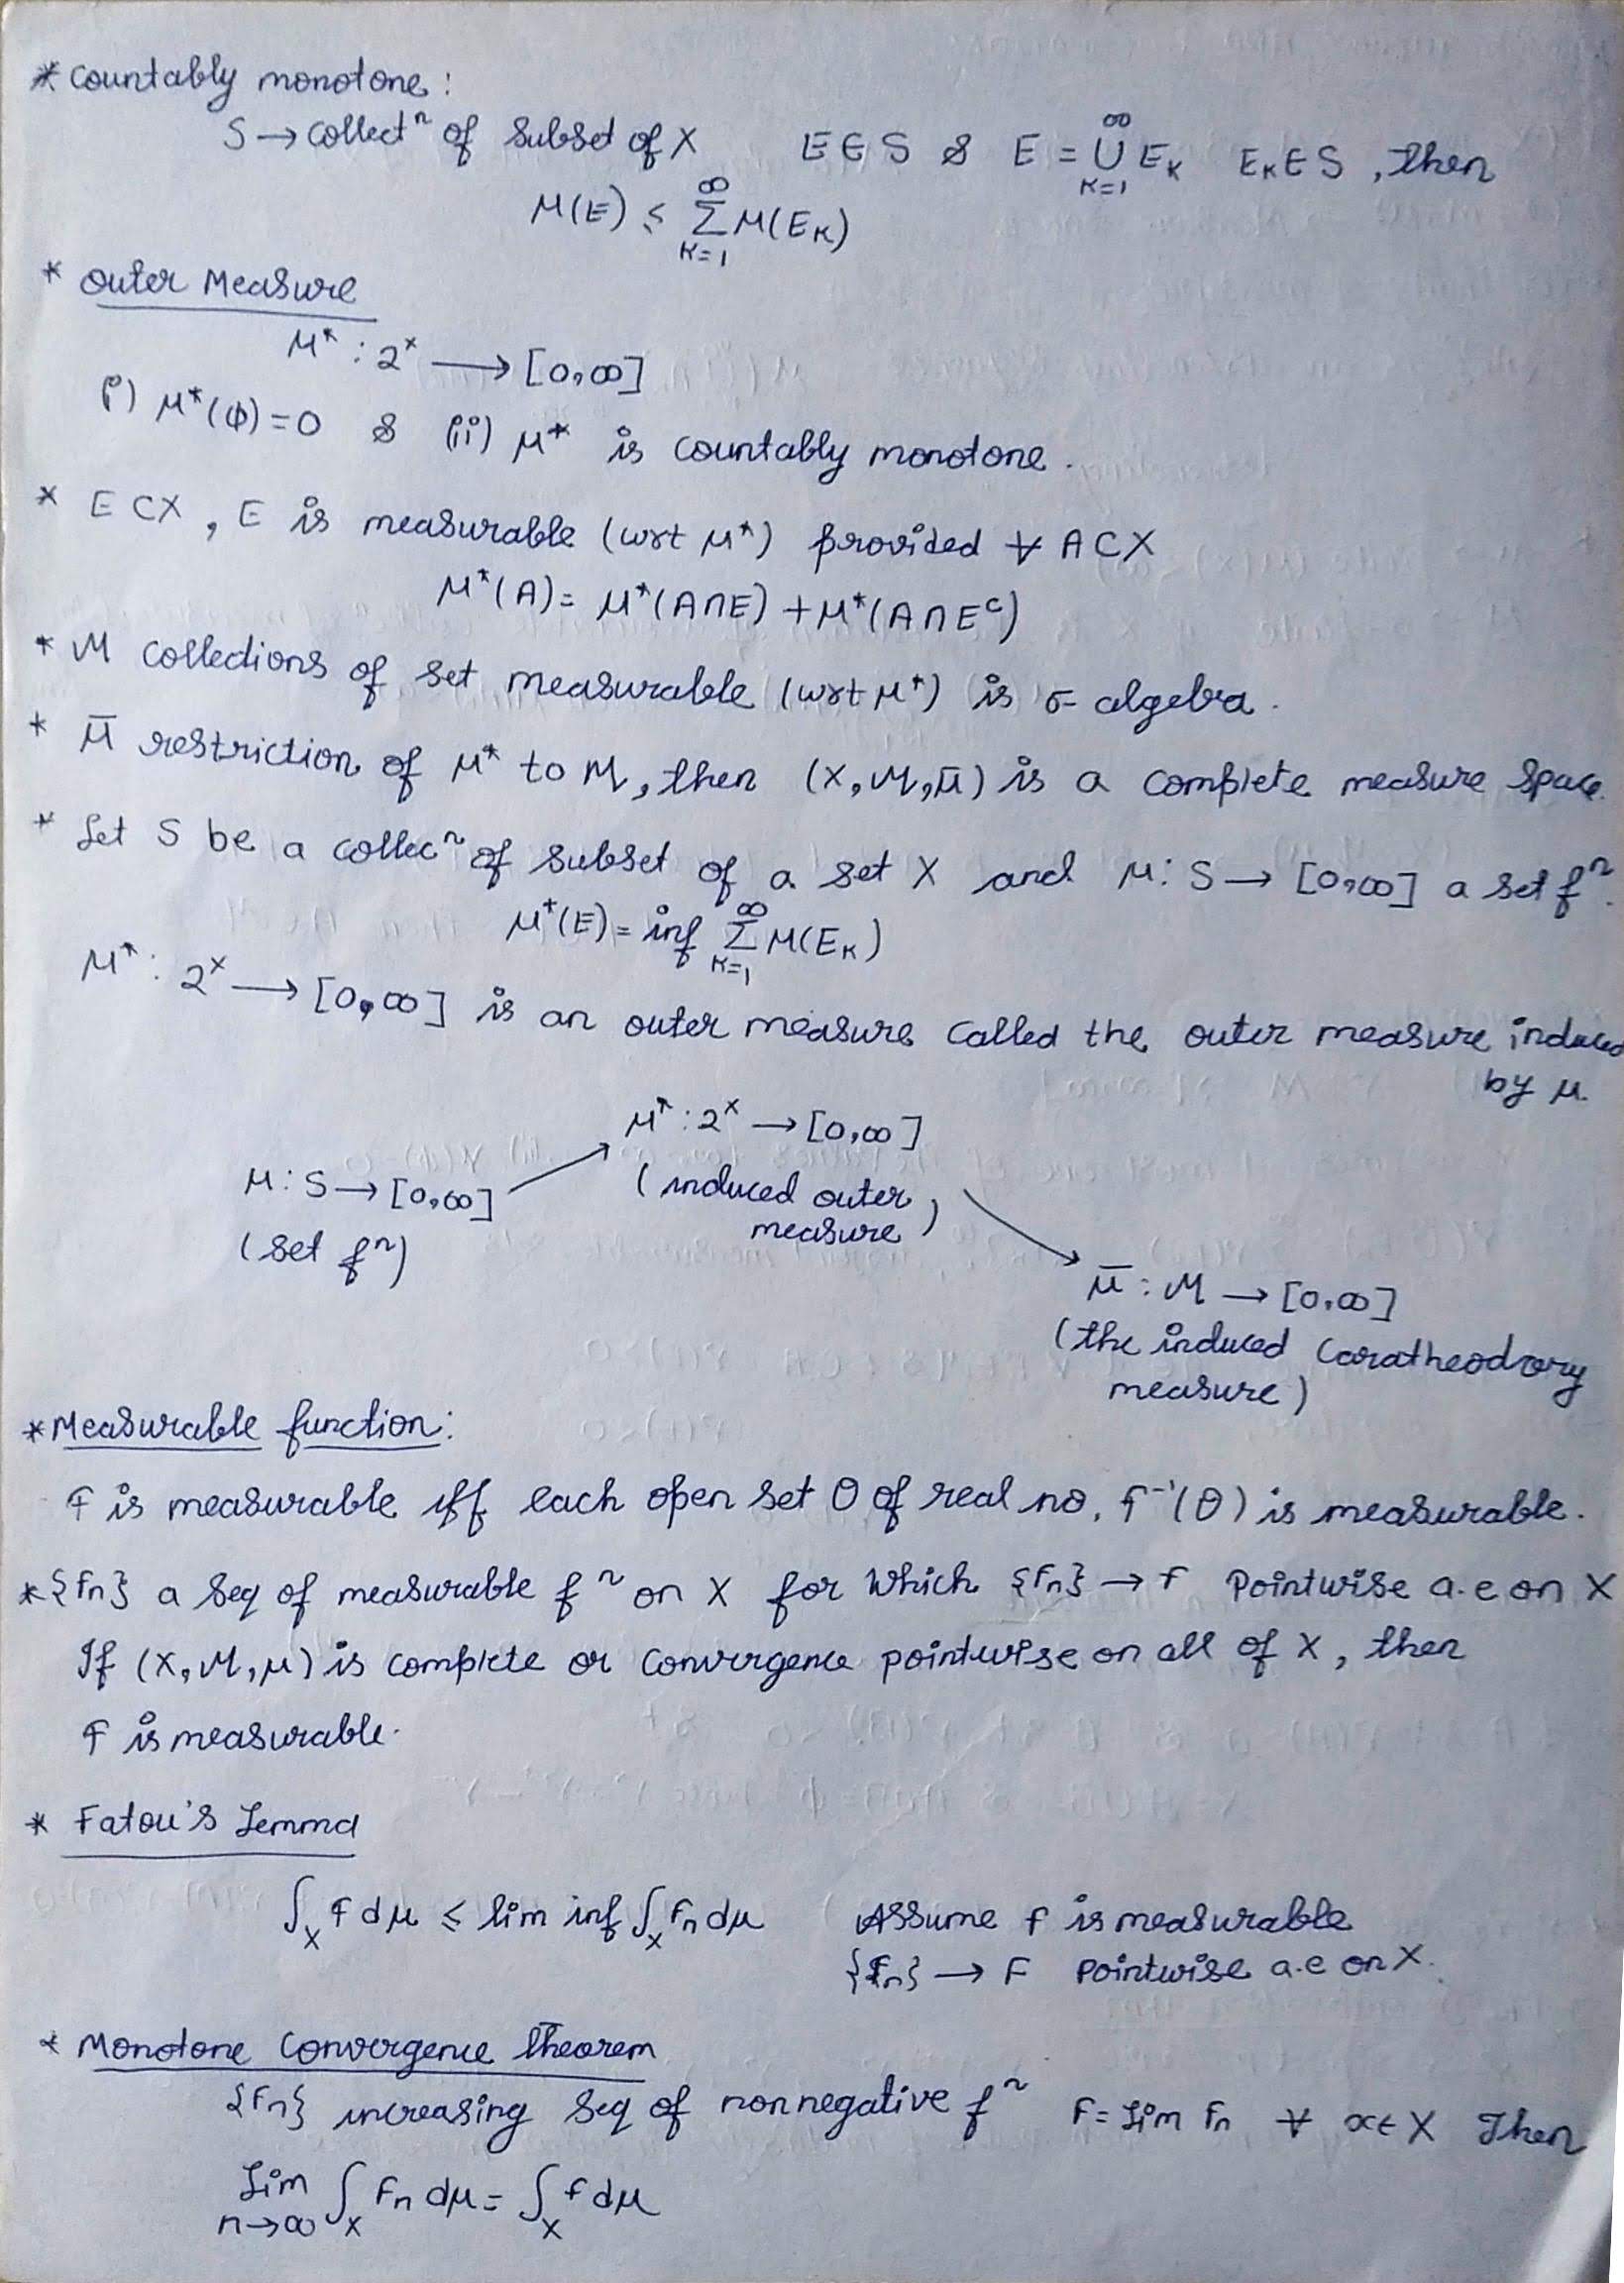 * Countably monotone :
S → collectⁿ of subset of X E ∈ S & E = ∞⋃K=1 E_K E_K ∈ S , then
μ(E) ≤ ∞∑K=1 μ(E_K)
* outer Measure
μ* : 2^X ⟶ [0,∞]
(i) μ*(ϕ)=0 & (ii) μ* is countably monotone .
* E ⊂ X , E is measurable (wrt μ*) provided ∀ A ⊂ X
μ*(A) = μ*(A∩E) + μ*(A∩E^c)
* M collections of set measurable (wrt μ*) is σ- algebra .
* μ̄ restriction of μ* to M , then (X, M, μ̄) is a complete measure space.
* Let S be a collecⁿ of subset of a set X and μ : S → [0,∞] a set fⁿ.
μ*(E) = inf ∞∑K=1 μ(E_K)
μ* : 2^X ⟶ [0,∞] is an outer measure called the outer measure induced
by μ.
μ* : 2^X → [0,∞]
μ : S → [0,∞] (induced outer
measure)
(set fⁿ)
μ̄ : M → [0,∞]
(the induced Caratheodrory
measure)
* Measurable function :
f is measurable iff each open set O of real no. f⁻¹(O) is measurable.
* {fn} a seq of measurable fⁿ on X for which {fn} → f Pointwise a.e on X
If (X, M, μ) is complete or convergence pointwise on all of X , then
f is measurable.
* Fatou's Lemma
∫_X f dμ ≤ lim inf ∫_X fn dμ Assume f is measurable
{fn} → f pointwise a.e on X.
* Monotone Convergence Theorem
{fn} increasing seq of nonnegative fⁿ f = Lim fn ∀ x ∈ X Then
Lim n→∞ ∫_X fn dμ = ∫_X f dμ